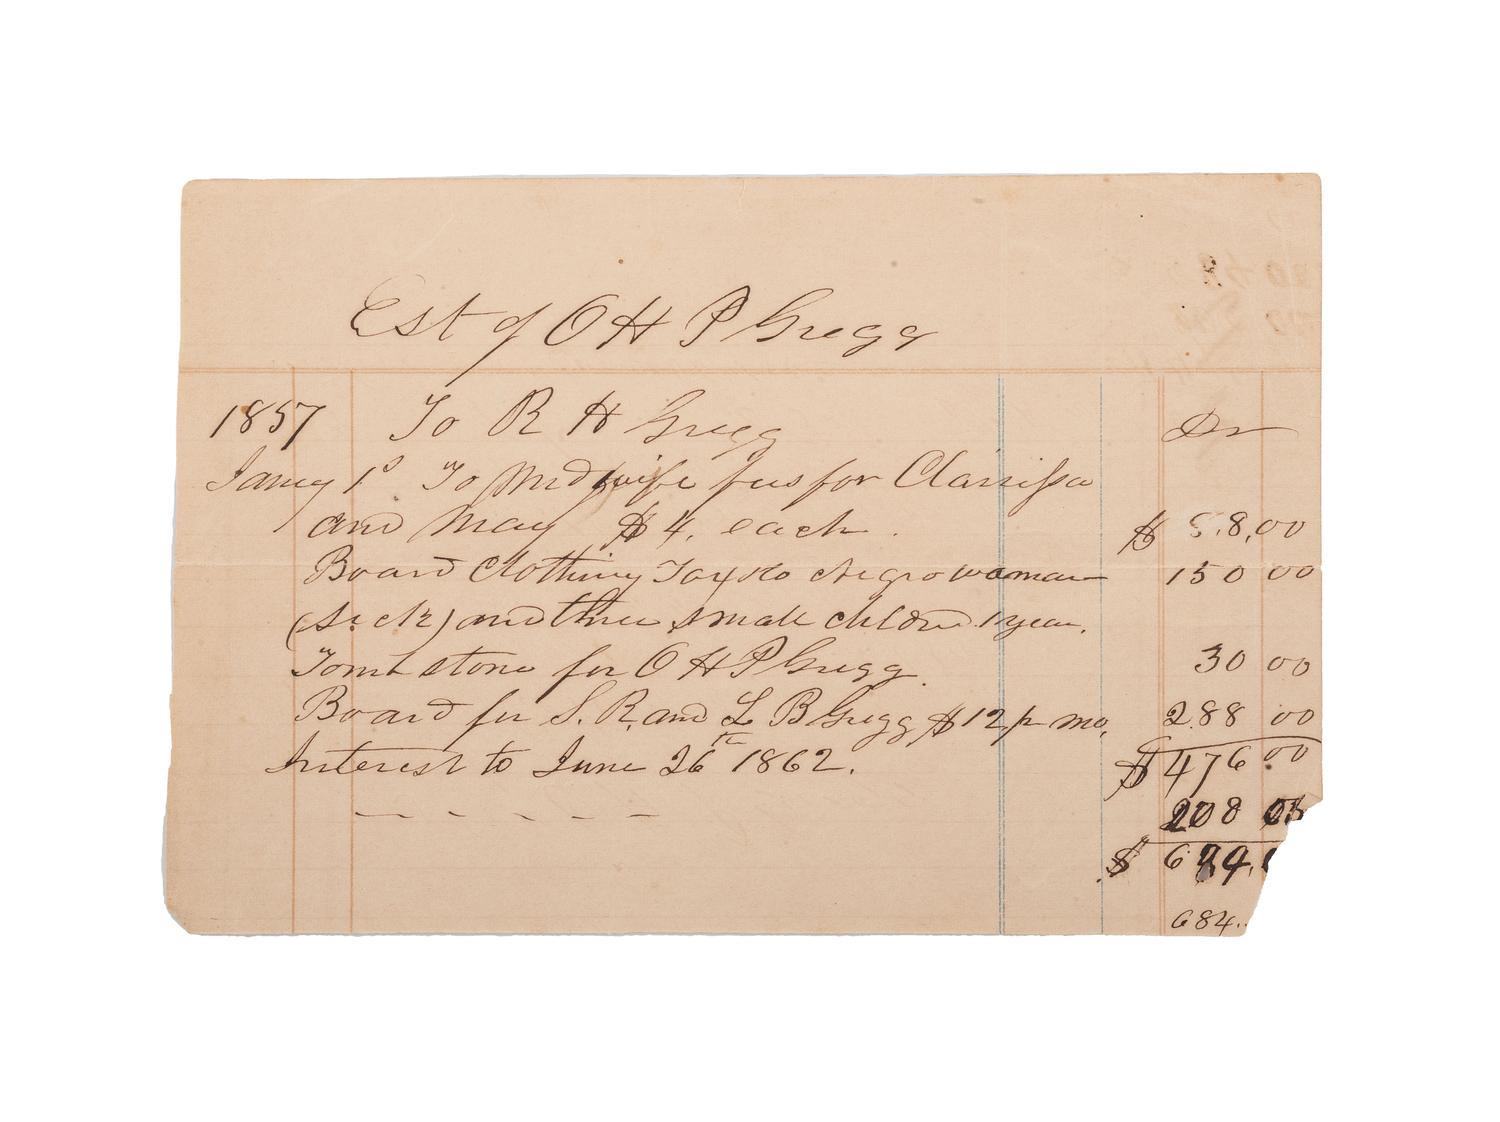 Est of O H P Gregg
1857 To R H Gregg Dr
Jany 1s To Midwife fees for Clarissa
and May $4. each. $ 8,00
Board Clothing Tax to Negro woman 150 00
(sick) and three small children 1 year.
Tomb stone for O H P Gregg. 30 00
Board for S. R. and L B Gregg $12 pr mo, 288 00
Interest to June 26th 1862. $ 476 00
208 03
$ 684.
684..